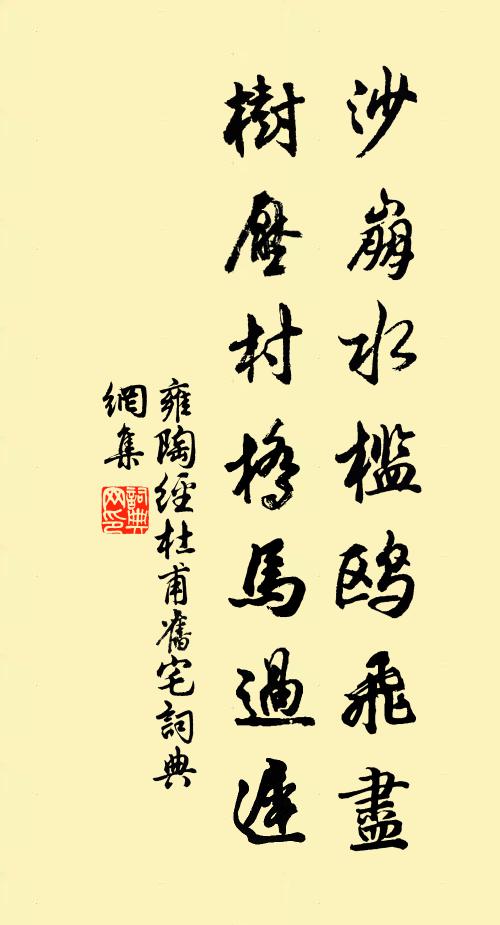 沙崩水檻鷗飛盡
樹壓村橋馬過遲
雍陶經杜甫舊宅詞典
網集
詞典
网印